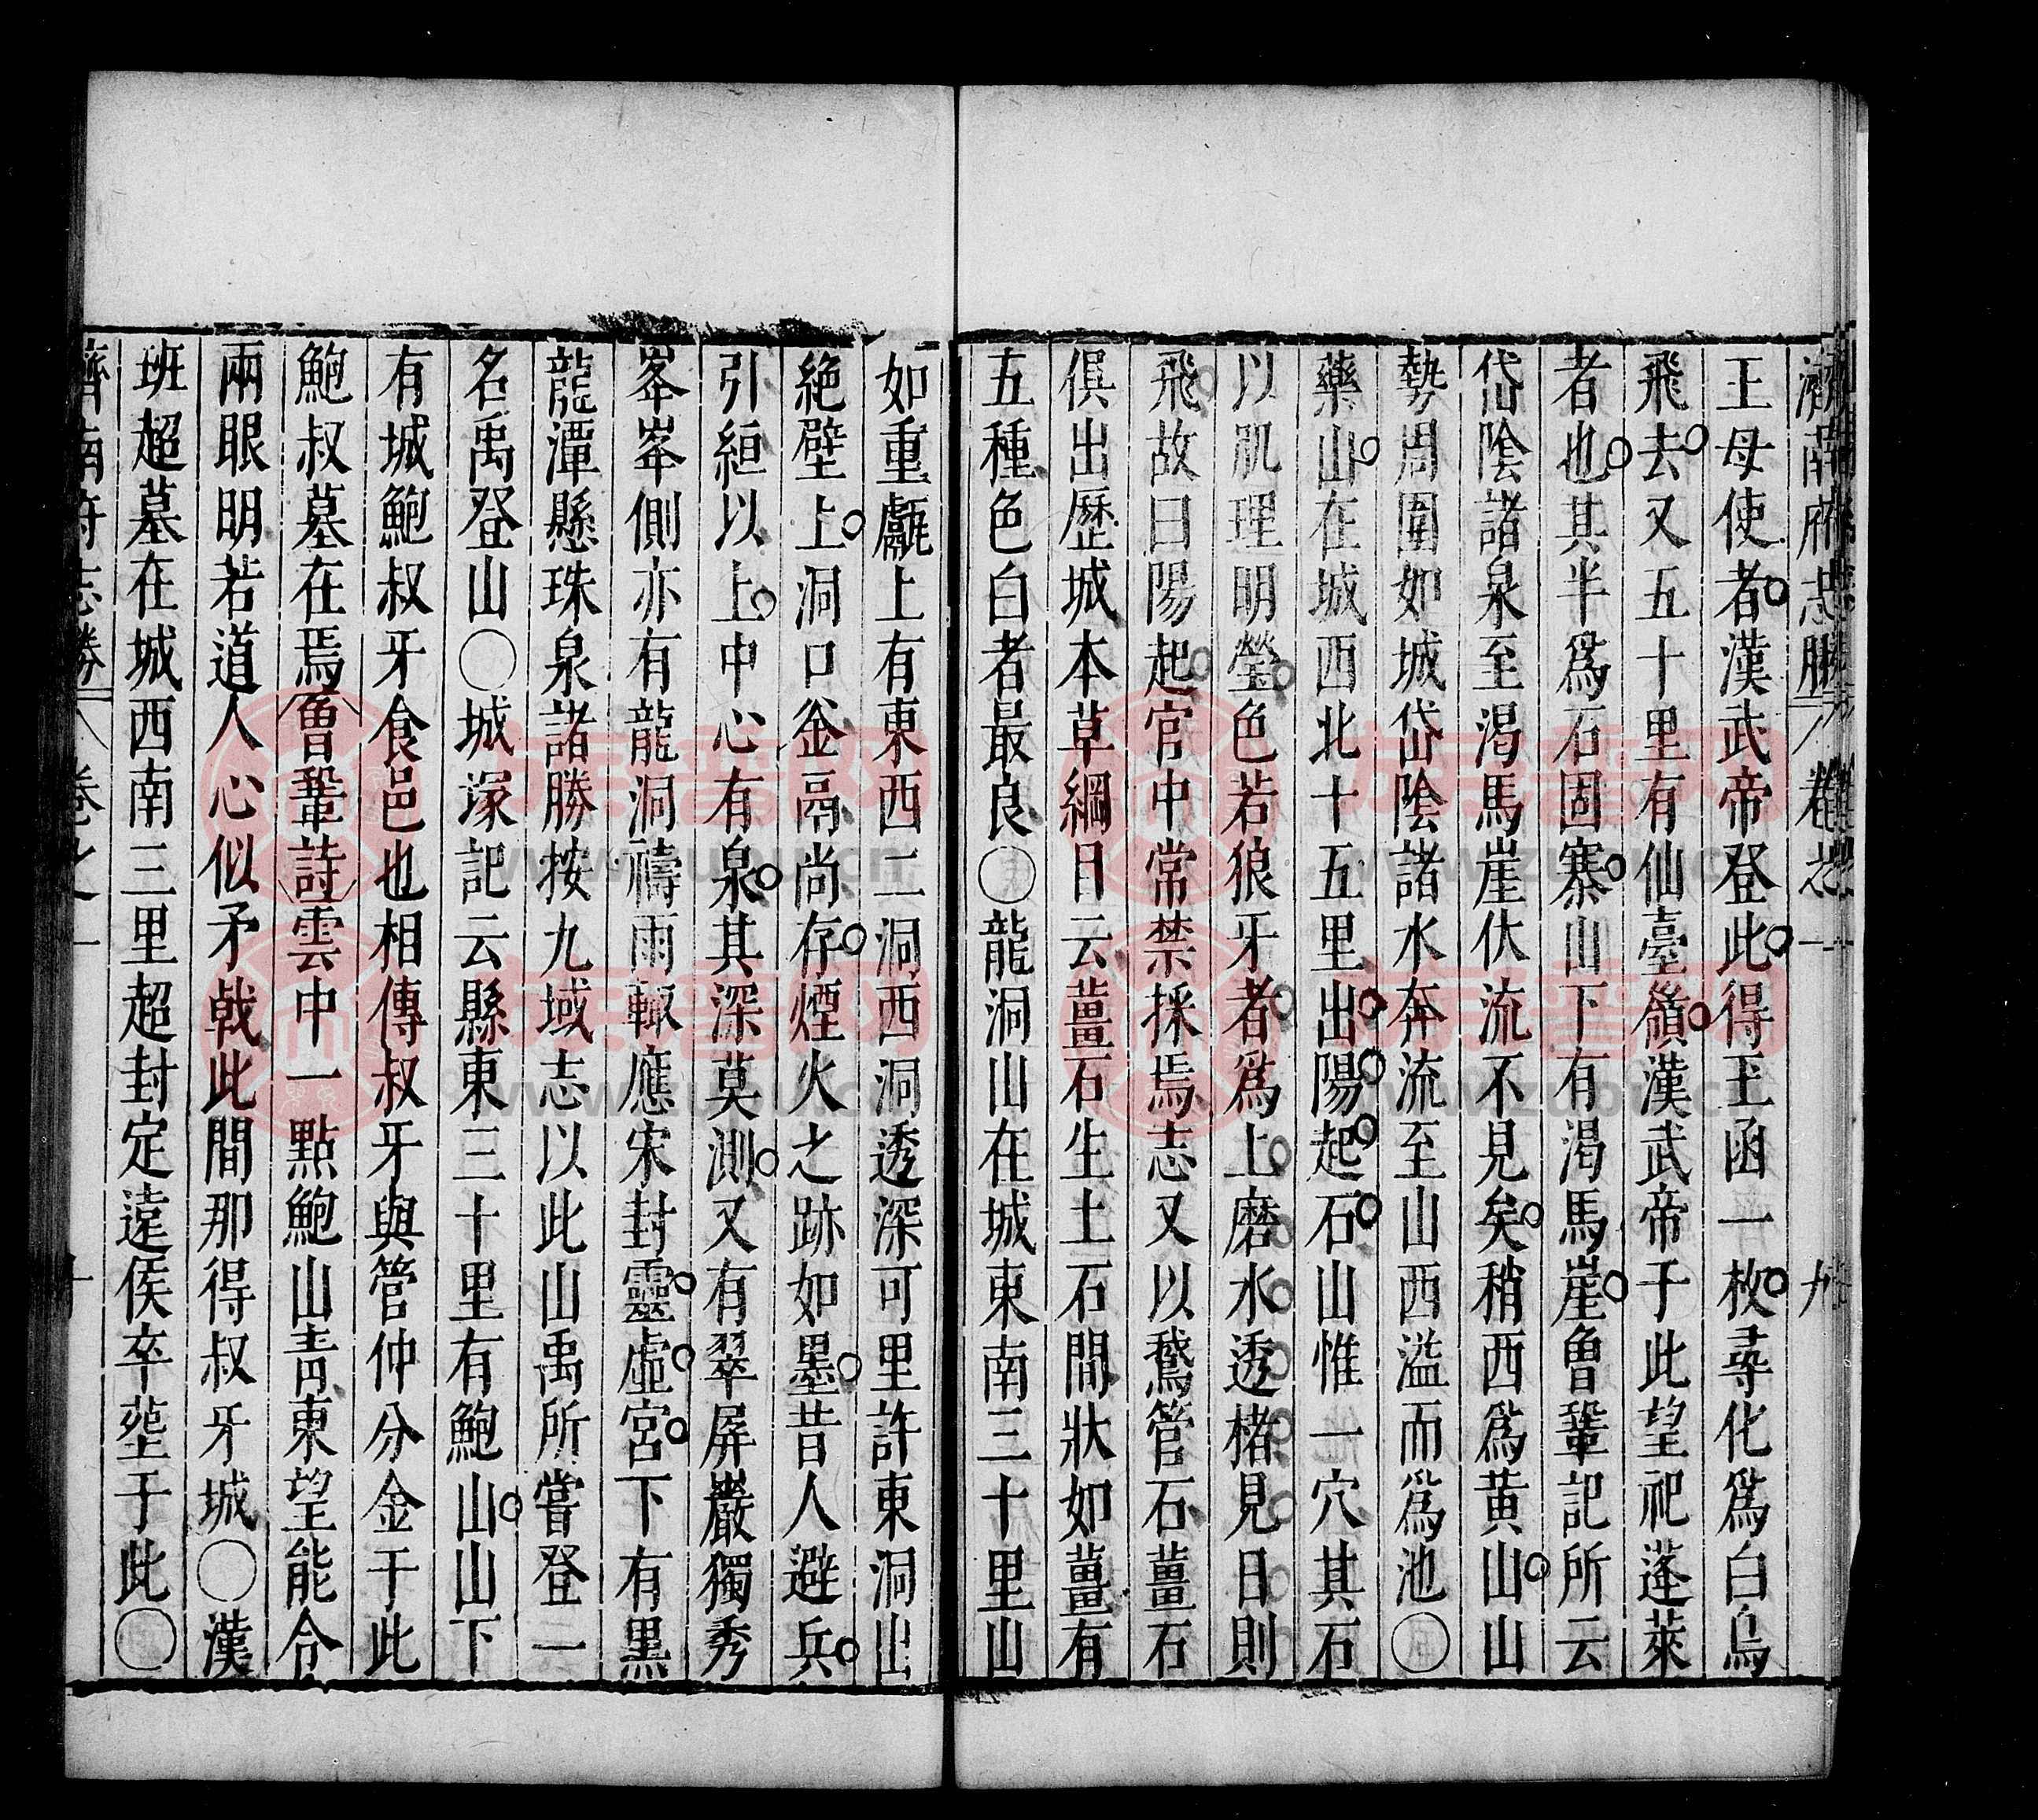 濟南府志勝 卷之一 九
王母使者漢武帝登此得玉函一枚尋化爲白烏
飛去又五十里有仙臺嶺漢武帝于此望祀蓬萊
者也其半爲石固寨山下有渴馬崖魯鞏記所云
岱陰諸泉至渴馬崖伏流不見矣稍西爲黄山山
勢周圍如城岱陰諸水奔流至山西溢而爲池〇
藥山在城西北十五里出陽起石山惟一穴其石
以肌理明瑩色若狼牙者爲上磨水透楮見日則
飛故曰陽起官中常禁採焉志又以鵞管石薑石
俱出歷城本草綱目云薑石生土石間狀如薑有
五種色白者最良〇龍洞山在城東南三十里山
如重甗上有東西二洞西洞透深可里許東洞出
絶壁上洞口釡鬲尚存煙火之跡如墨昔人避兵
引絙以上中心有泉其深莫測又有翠屏巖獨秀
峯峯側亦有龍洞禱雨輙應宋封靈虛宮下有黑
龍潭懸珠泉諸勝按九域志以此山禹所嘗登一
名禹登山〇城塜記云縣東三十里有鮑山山下
有城鮑叔牙食邑也相傳叔牙與管仲分金于此
鮑叔墓在焉魯鞏詩雲中一點鮑山青東望能令
兩眼明若道人心似矛戟此間那得叔牙城〇漢
班超墓在城西南三里超封定遠侯卒塟于此〇
濟南府志勝 卷之一 十
族譜网
www.zupu.cn
族譜网
www.zupu.cn
族譜网
www.zupu.cn
族譜网
www.zupu.cn